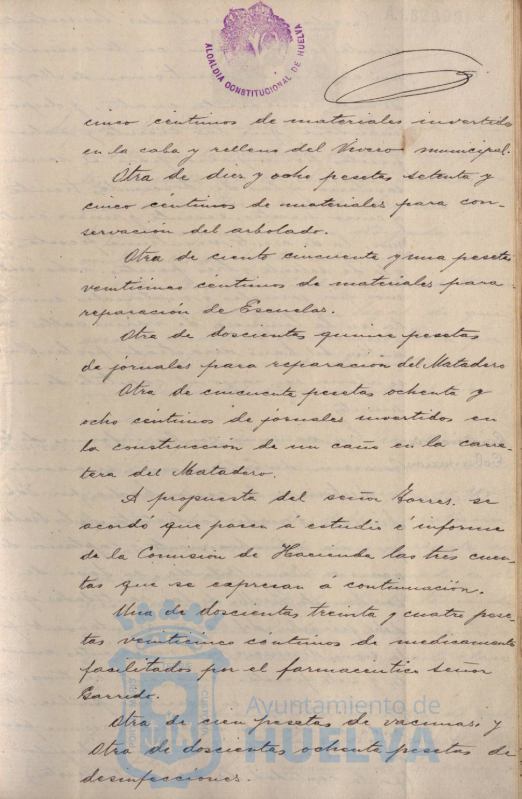 ALCALDIA CONSTITUCIONAL DE HUELVA
cinco céntimos de materiales invertido
en la caba y relleno del Vivero municipal.
Otra de diez y ocho pesetas setenta y
cinco céntimos de materiales para con-
servación del arbolado.
Otra de ciento cincuenta y una pesetas
veinticinco céntimos de materiales para
reparación de Escuelas.
Otra de doscientas quince pesetas
de jornales para reparación del Matadero
Otra de cincuenta pesetas ochenta y
ocho céntimos de jornales invertidos en
la construcción de un caño en la carre-
tera del Matadero.
A propuesta del señor Torres. se
acordó que pasen á estudio é informe
de la Comisión de Hacienda las tres cuen-
tas que se expresan á continuación.
Una de doscientas treinta y cuatro pese-
tas veinticinco céntimos de medicamentos
facilitados por el farmaceutico señor
Garrido.
Otra de cien pesetas de vacunas; y
Otra de doscientas ochenta pesetas de
desinfecciones.
Ayuntamiento de
HUELVA